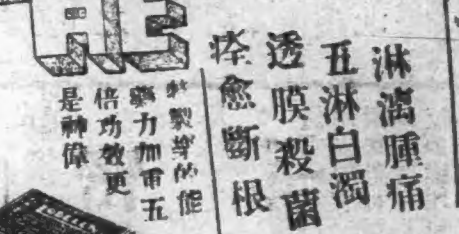 淋漓腫痛
五淋白濁
透膜殺菌
痊愈斷根
特製 的能
藥力加重五
倍功效更
是神偉